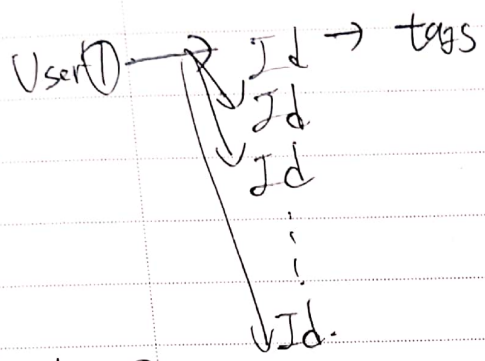 User① → Id → tags
Id
Id
Id.